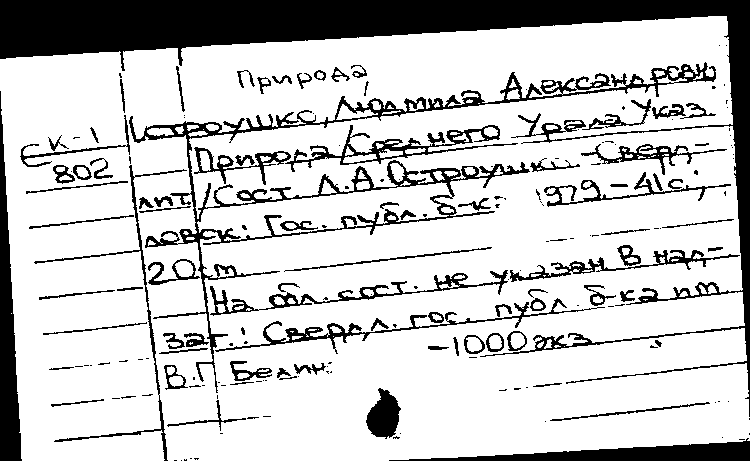 Природа,
Остроушко, Людмила Александровн.
Ск-1
802
Природа Среднего Урала: Указ.
лит. / Сост. Л.А. Остроушко. - Сверд-
ловск: Гос. публ. б-ка, 1979. - 41 с.;
20 см.
На обл. сост. не указан. В над-
заг.: Свердл. гос. публ. б-ка им.
В.Г. Белин.
- 1000 экз.